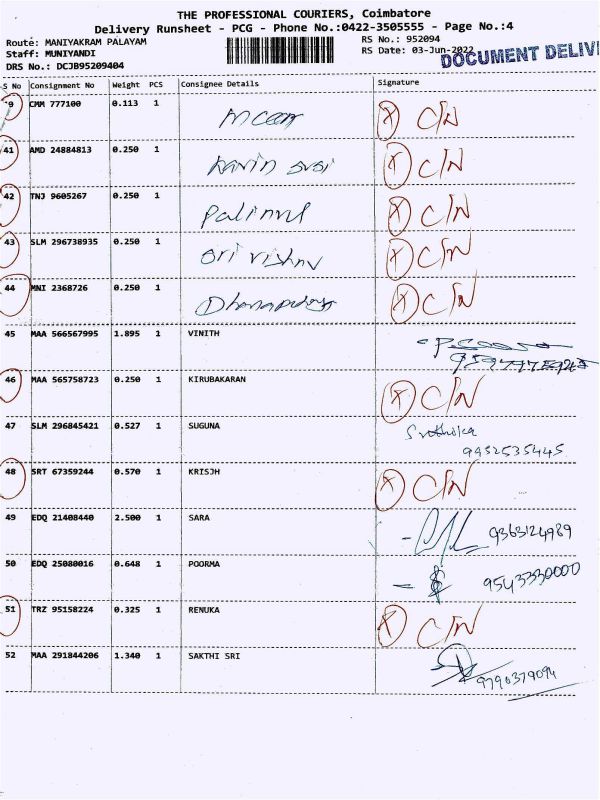 THE PROFESSIONAL COURIERS, Coimbatore
Delivery Runsheet - PCG - Phone No.:0422-3505555 - Page No.:4
Route: MANIYAKRAM PALAYAM RS No.: 952094
Staff: MUNIYANDI RS Date: 03-Jun-2022
DOCUMENT DELIV
DRS No.: DCJB95209404
S No Consignment No Weight PCS Consignee Details Signature
CMM 777100 0.113 1 C/N
41 AMD 24884813 0.250 1 C/N
42 TNJ 9605267 0.250 1 C/N
43 SLM 296738935 0.250 1 Sri Vishnu C/N
44 MNI 2368726 0.250 1 C/N
45 MAA 566567995 1.895 1 VINITH
46 MAA 565758723 0.250 1 KIRUBAKARAN C/N
47 SLM 296845421 0.527 1 SUGUNA
9952535445
48 SRT 67359244 0.570 1 KRISJH C/N
49 EDQ 21408440 2.500 1 SARA 9363124989
50 EDQ 25080016 0.648 1 POORMA 9543330000
51 TRZ 95158224 0.325 1 RENUKA C/N
52 MAA 291844206 1.340 1 SAKTHI SRI
9790379094